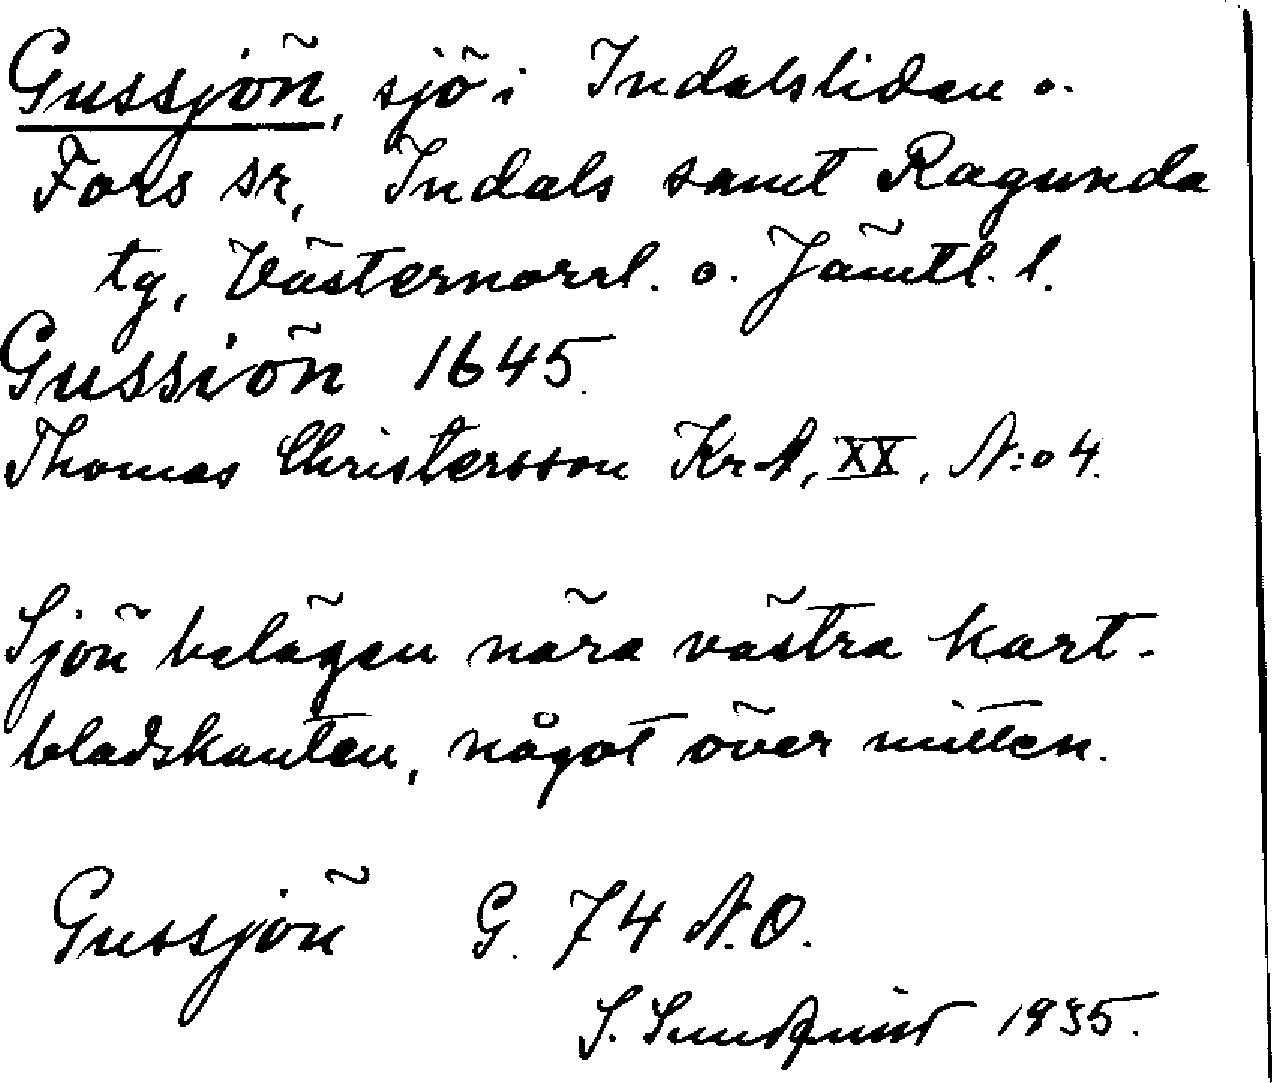 Gussjön, sjö i Indalsliden o.
Fors sr, Indals samt Ragunda
tg, Västernorrl. o. Jämtl. l.
Gussiön 1645.
Thomas Christersson KrA, XX, N:o 4.
Sjön belägen nära västra kart-
bladskanten, något över mitten.
Gussjön G. 74 N.O.
S. Sundquist 1935.